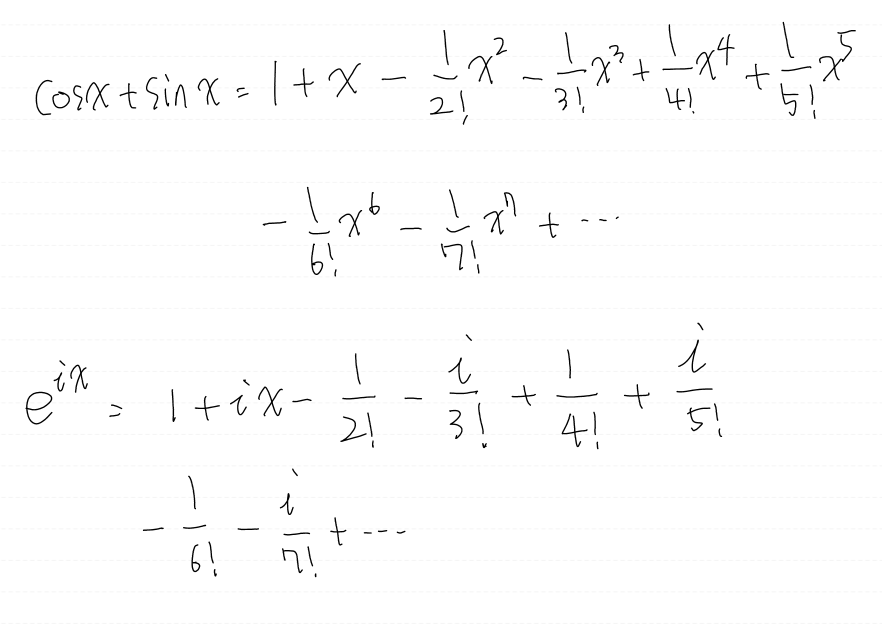 cosx + sinx = 1 + x - \frac{1}{2!}x^2 - \frac{1}{3!}x^3 + \frac{1}{4!}x^4 + \frac{1}{5!}x^5
- \frac{1}{6!}x^6 - \frac{1}{7!}x^7 + ...
e^{ix} = 1 + ix - \frac{1}{2!} - \frac{i}{3!} + \frac{1}{4!} + \frac{i}{5!}
- \frac{1}{6!} - \frac{i}{7!} + ...